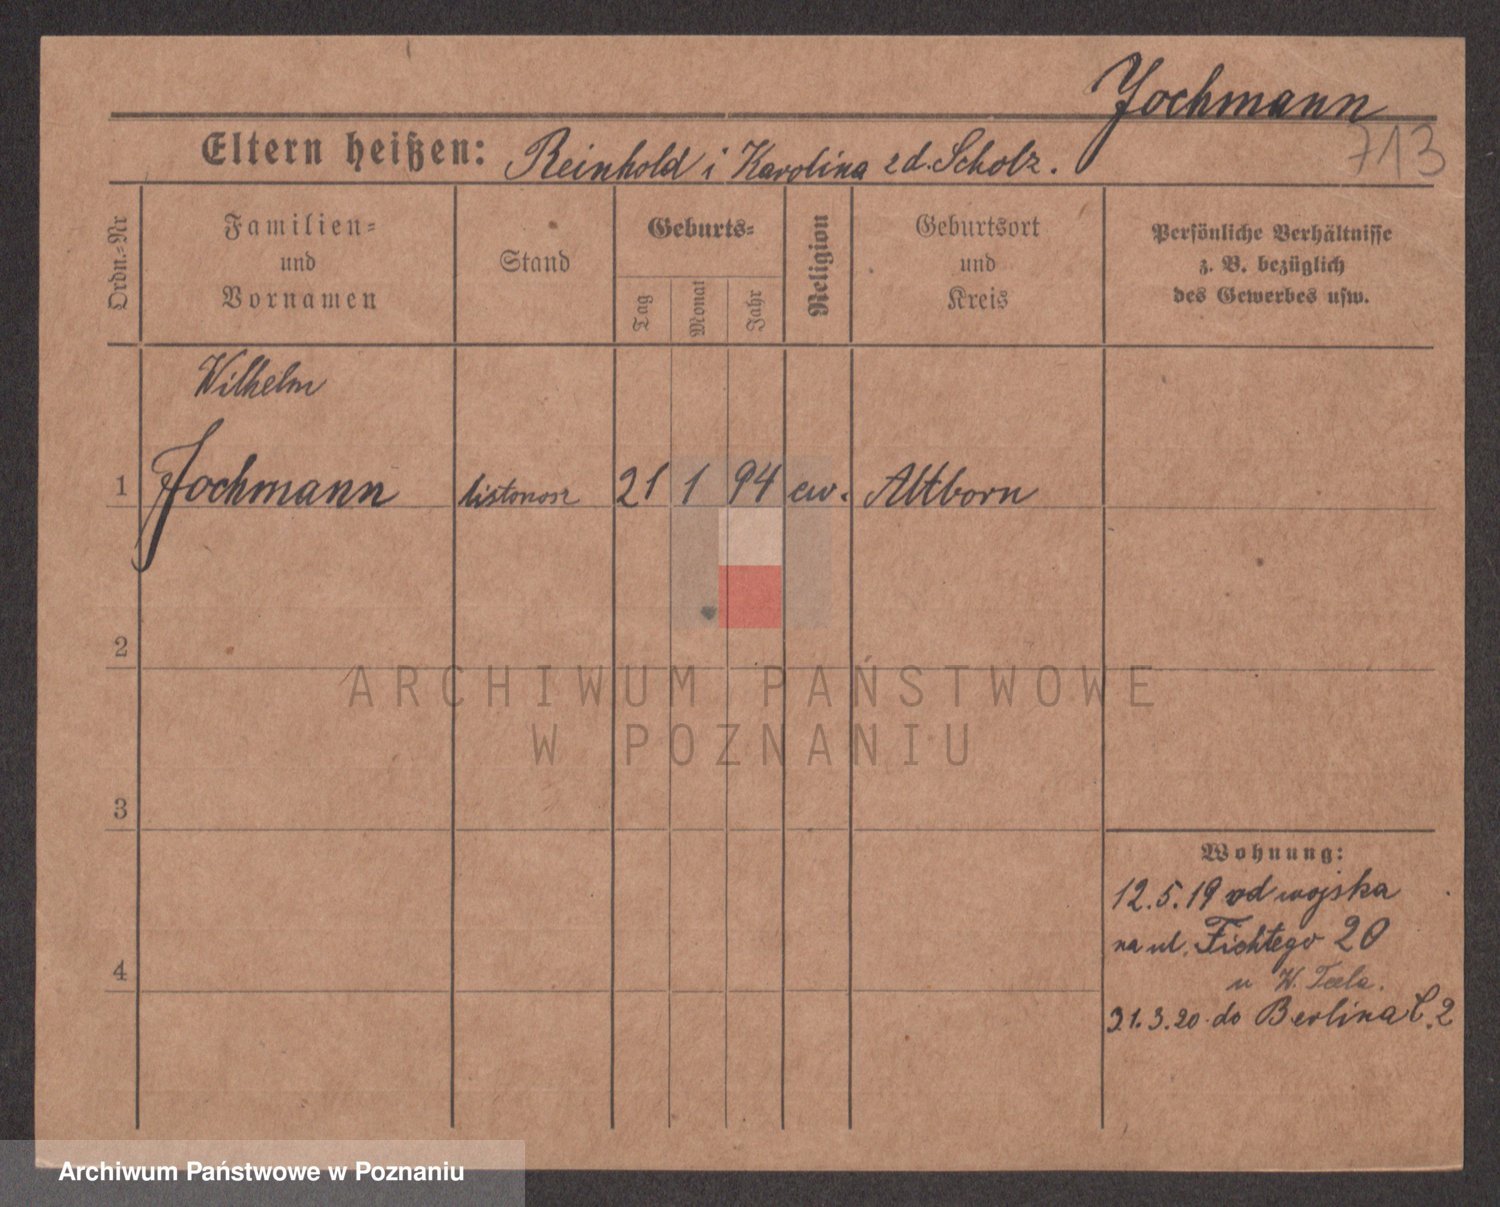 Jochmann
713
Eltern heißen: Reinhold i Karolina z d. Scholz.
Ordn.-Nr
Familien-
und
Vornamen
Stand
Geburts-
Tag
Monat
Jahr
Religion
Geburtsort
und
Kreis
Persönliche Verhältnisse
z. B. bezüglich
des Gewerbes usw.
Wilhelm
1 Jochmann listonosz 21 1 94 ew. Altborn
2
ARCHIWUM PAŃSTWOWE
W POZNANIU
3
Wohnung:
12.5.19 od wojska
na ul. Fichtego 20
u W.
4
31.3.20 do Berlina C.2
Archiwum Państwowe w Poznaniu